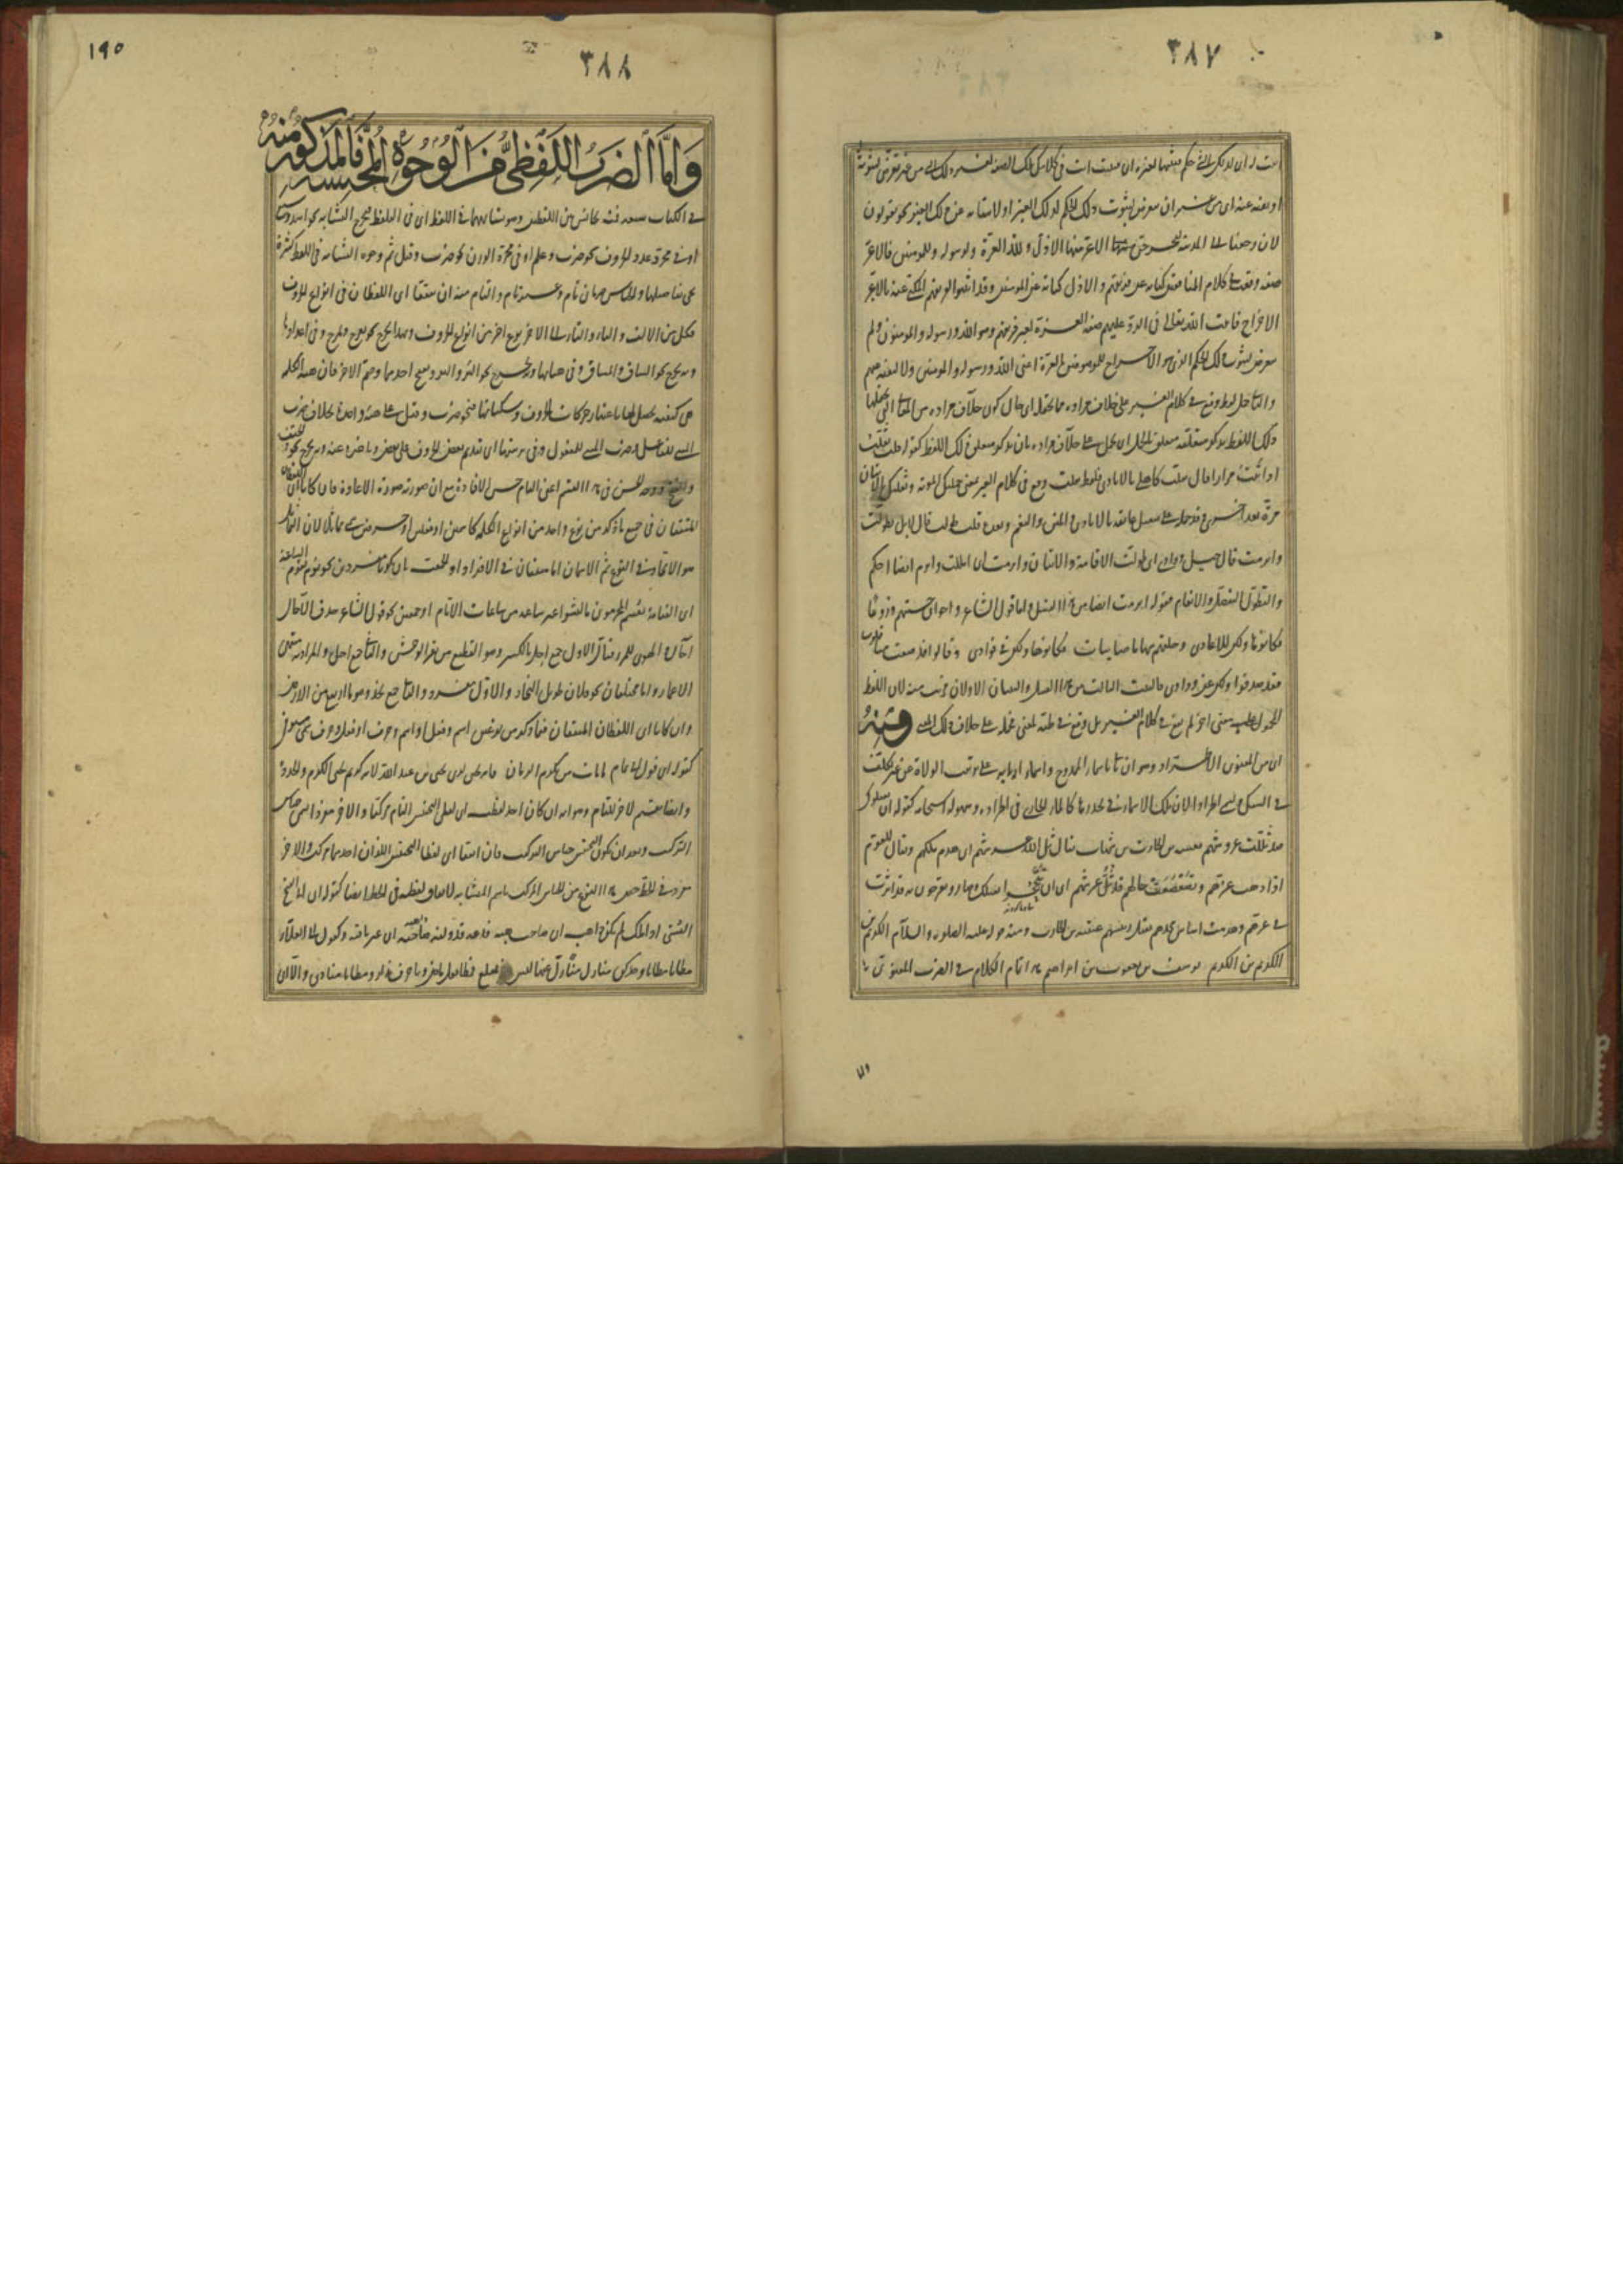 ٣٨٧
اثبت له اى لذلك الشئ حكم فتثبتها لغيره اى فتثبت انت فى كلامك تلك الصفة لغير ذلك الشئ من غير تعرض لثبوته
او نفيه عنه اى من غير ان تتعرض لثبوت ذلك الحكم لذلك الغير او لانتفائه عن ذلك الغير نحو يقولون
لئن رجعنا الى المدينة ليخرجن الاعز منها الاذل ولله العزة ولرسوله وللمؤمنين فالاعز
صفة وقعت فى كلام المنافقين كناية عن فريقهم والاذل كناية عن المؤمنين وقد اثبتوا لفريقهم المكنى عنه بالاعز
الاخراج فاثبت الله تعالى فى الرد عليهم صفة العزة لغير فريقهم وهو الله ورسوله والمؤمنون ولم
يتعرض لثبوت ذلك الحكم الذى هو الاخراج للموصوفين بالعزة اعنى الله ورسوله والمؤمنين ولا لنفيه عنهم
والثانى حمل لفظ وقع فى كلام الغير على خلاف مراده مما يحتمله اى حال كون خلاف مراده من المعانى التى يحتملها
ذلك اللفظ بذكر متعلقه متعلق بالحمل اى يحمل على خلاف مراده بان يذكر متعلق ذلك اللفظ كقوله قلت ثقلت
اذ اتيت مرارا قال ثقلت كاهلى بالايادى فلفظ ثقلت وقع فى كلام الغير بمعنى حملتك المؤنة وثقلتك بالاتيان
مرة بعد اخرى وقد حمله على تثقيل عاتقه بالايادى والمنن والنعم وبعده قلت طولت قال لا بل تطولت
وابرمت قال حبل ودادى اى طولت الاقامة والاتيان وابرمت اى امللت وابرم ايضا احكم
والتطول التفضل والانعام فقوله ابرمت ايضا من هذا القبيل واما قول الشاعر واخوان حسبتهم دروعا
فكانوها ولكن للاعادى وخلتهم سهاما صائبات فكانوها ولكن فى فؤادى وقالوا قد صفت منا قلوب
فقد صدقوا ولكن عن ودادى فالبيت الثالث من هذا القبيل والبيتان الاولان قريب منه لان اللفظ
المحمول على معنى آخر لم يقع فى كلام الغير بل وقع فى ظنه لمعنى فحمله على خلاف ذلك المعنى ومنه
اى من المعنوى الاطراد وهو ان تاتى باسماء الممدوح واسماء آبائه على ترتيب الولادة من غير تكلف
فى السبك وسمى اطرادا لان تلك الاسماء فى تحدرها كالماء الجارى فى اطراده وسهولة انسجامه كقوله ان يقتلوك
فقد ثللت عروشهم بعتيبة بن الحارث بن شهاب يقال ثل الله عروشهم اى هدم ملكهم ويقال للقوم
اذا ذهب عزهم وتضعضعت حالهم قد ثل عرشهم اى ان تبجحوا بقتلك وصاروا يفرحون به فقد اثرت
فى عزهم وهدمت اساس مجدهم بقتل رئيسهم عتيبة بن الحارث ومنه قوله عليه الصلوة والسلام الكريم بن
الكريم بن الكريم يوسف بن يعقوب بن ابراهيم هذا تمام الكلام فى الضرب المعنوى
١٩٥
٣٨٨
واما الضرب اللفظى من الوجوه المحسنة فالمذكور منه
فى الكتاب سبعة فمنه الجناس بين اللفظين وهو تشابههما فى اللفظ اى فى التلفظ فيخرج التشابه نحو اسد وسبع
او فى مجرد عدد الحروف نحو ضرب وعلم او فى مجرد الوزن نحو ضرب وقتل ثم وجوه التشابه فى اللفظ كثيرة
يجئ تفاصيلها والجناس ضربان تام وغير تام والتام منه ان يتفقا اى اللفظان فى انواع الحروف
فكل من الالف والباء والتاء الى الآخر نوع آخر من انواع الحروف وبهذا يخرج نحو يفرح ويمرح وفى اعدادها
وبه يخرج نحو الساق والمساق وفى هيئاتها وبه يخرج نحو البرد والبرد بفتح احدهما وضم الآخر فان هيئة الكلمة
هى كيفية تحصل لها باعتبار حركات الحروف وسكناتها فنحو ضرب وقتل على هيئة واحدة بخلاف ضرب
المبنى للفاعل وضرب المبنى للمفعول وفى ترتيبها اى تقديم بعض الحروف على بعض وتاخيره عنه وبه يخرج نحو الفتح
والحتف ووجه الحسن فى هذا القسم اعنى التام حسن الافادة مع ان صورته صورة الاعادة فان كانا اى اللفظان
المتفقان فى جميع ما ذكر من نوع واحد من انواع الكلمة كاسمين او فعلين او حرفين سمى مماثلا لان التماثل
هو الاتحاد فى النوع ثم الاسمان اما متفقان فى الافراد او الجمعية بان يكونا مفردين نحو ويوم تقوم الساعة
اى القيامة يقسم المجرمون ما لبثوا غير ساعة من ساعات الايام او جمعين كقول الشاعر حدق الآجال
آجال والهوى للمرء قتال الاول جمع اجل بالكسر وهو القطيع من بقر الوحش والثانى جمع اجل والمراد به منتهى
الاعمار واما مختلفان نحو فلان طويل النجاد والاول مفرد والثانى جمع نجد وهو ما ارتفع من الارض
وان كانا اى اللفظان المتفقان فيما ذكر من نوعين اسم وفعل او اسم وحرف او فعل وحرف سمى مستوفى
كقوله اى قول ابى تمام ما مات من كرم الزمان فانه يحيى لدى يحيى بن عبد الله لانه كريم يحيى الكرم والجود
وايضا تقسيم آخر للتام وهو انه ان كان احد لفظيه اى لفظى التجنيس التام مركبا والآخر مفردا سمى جناس
التركيب وبعد ان يكون التجنيس جناس التركيب فان اتفقا اى لفظا التجنيس اللذان احدهما مركب والآخر
مفرد فى الخط خص هذا النوع من الجناس المركب باسم المتشابه لاتفاق لفظيه فى الخط ايضا كقوله اى ابى الفتح
البستى اذا ملك لم يكن ذا هبة اى صاحب هبة فدعه فدولته ذاهبة اى غير باقية وكقول ابى العلاء
مطايا مطايا وجدكن منازل منازل عنها ليس عنى بمقلع فمطا فعل ماض ويا حرف نداء ومطايا منادى والا اى